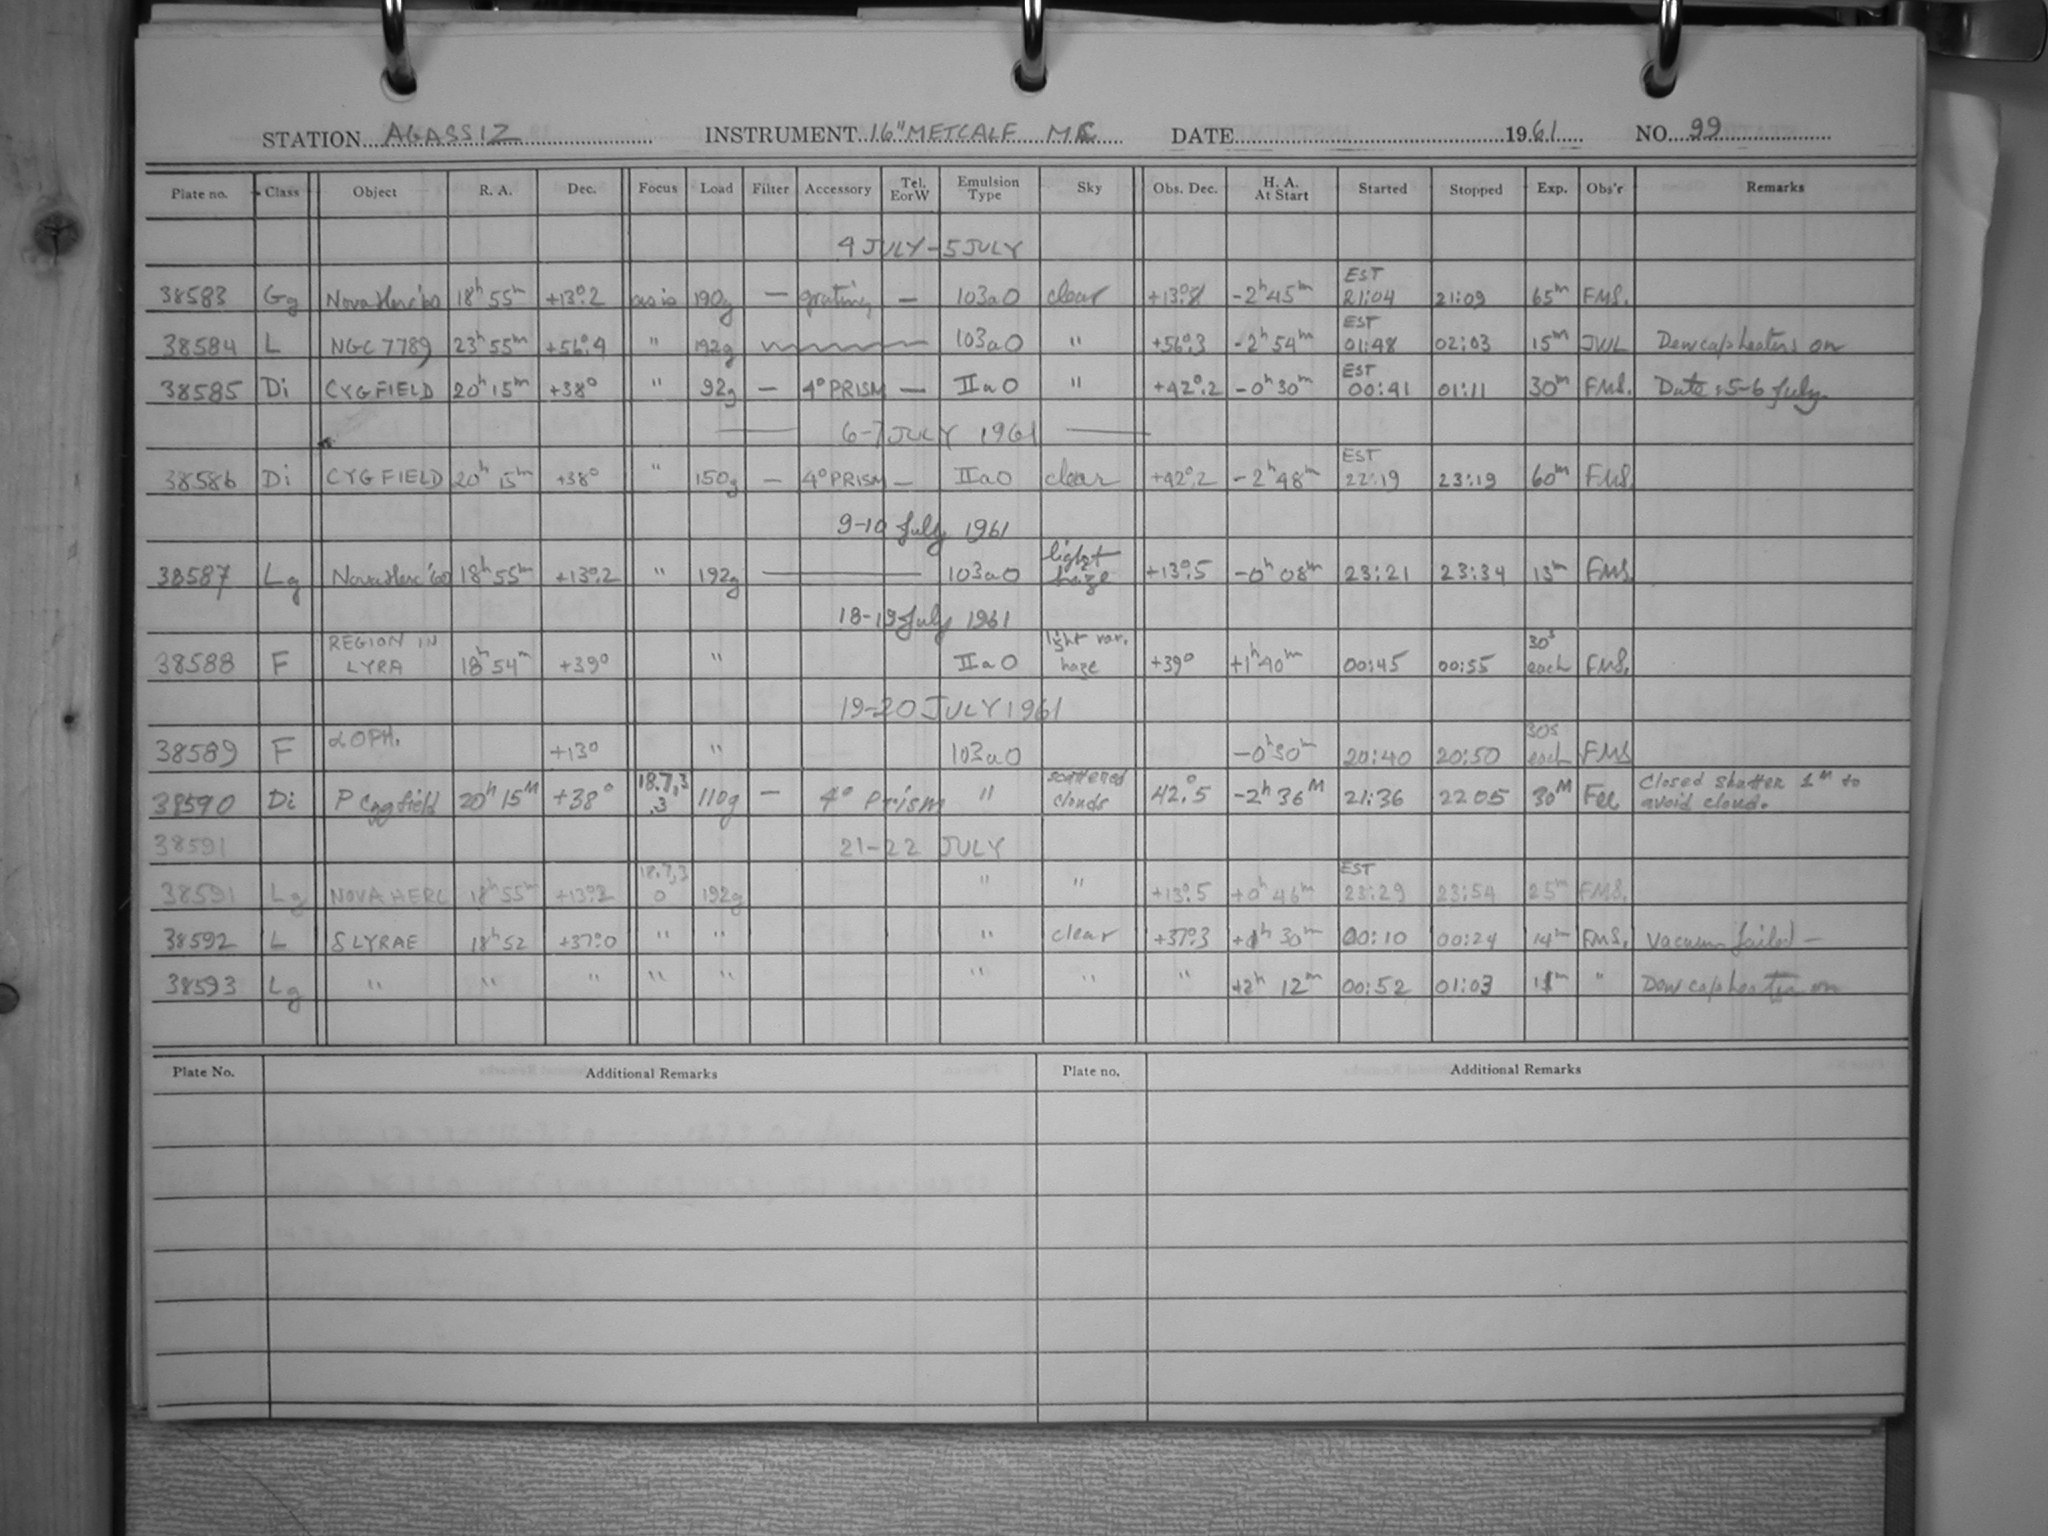 STATION AGASSIZ INSTRUMENT 16" METCALF MC DATE 1961 NO. 99
Plate no. Class Object R. A. Dec. Focus Load Filter Accessory Tel. EorW Emulsion Type Sky Obs. Dec. H. A. At Start Started Stopped Exp. Obs'r Remarks
4 JULY-5 JULY
38583 Gg Nova Herc '60 18h 55m +13°.2 as is 190g — grating — 103aO clear +13°.8 -2h 45m EST 21:04 21:09 65m FMS.
38584 L NGC 7789 23h 55m +56°.4 " 192g 103aO " +56°.3 -2h 54m EST 01:48 02:03 15m JWL Dewcap heaters on
38585 Di CYG FIELD 20h 15m +38° " 92g — 4° PRISM — IIaO " +42°.2 -0h 30m EST 00:41 01:11 30m FMS. Date: 5-6 July.
6-7 JULY 1961
38586 Di CYG FIELD 20h 15m +38° " 150g — 4° PRISM — IIaO clear +42°.2 -2h 48m EST 22:19 23:19 60m FMS.
9-10 July 1961
38587 Lg Nova Herc '60 18h 55m +13°.2 " 192g — 103aO light haze +13°.5 -0h 08m 23:21 23:34 13m FMS
18-19 July 1961
38588 F REGION IN LYRA 18h 54m +39° " IIaO light var. haze +39° +1h 40m 00:45 00:55 30s each FMS.
19-20 JULY 1961
38589 F α OPH. +13° " 103aO -0h 50m 20:40 20:50 30s each FMS
38590 Di P Cyg field 20h 15M +38° 18.7,3 .3 110g — 4° Prism " scattered clouds 42°.5 -2h 36M 21:36 22 05 30M Closed shutter 1M to avoid cloud.
38591 21-22 JULY
38591 Lg NOVA HERC 18h 55m +13°.2 18.7,3 0 192g " " +13°.5 +0h 46m EST 23:29 23:54 25m FMS.
38592 L S LYRAE 18h 52 +37°.0 " " " clear +37°.3 +1h 30m 00:10 00:24 14m FMS. Vacuum failed —
38593 Lg " " " " " " " " +2h 12m 00:52 01:03 11m " Dew cap heater on
Plate No. Additional Remarks Plate no. Additional Remarks